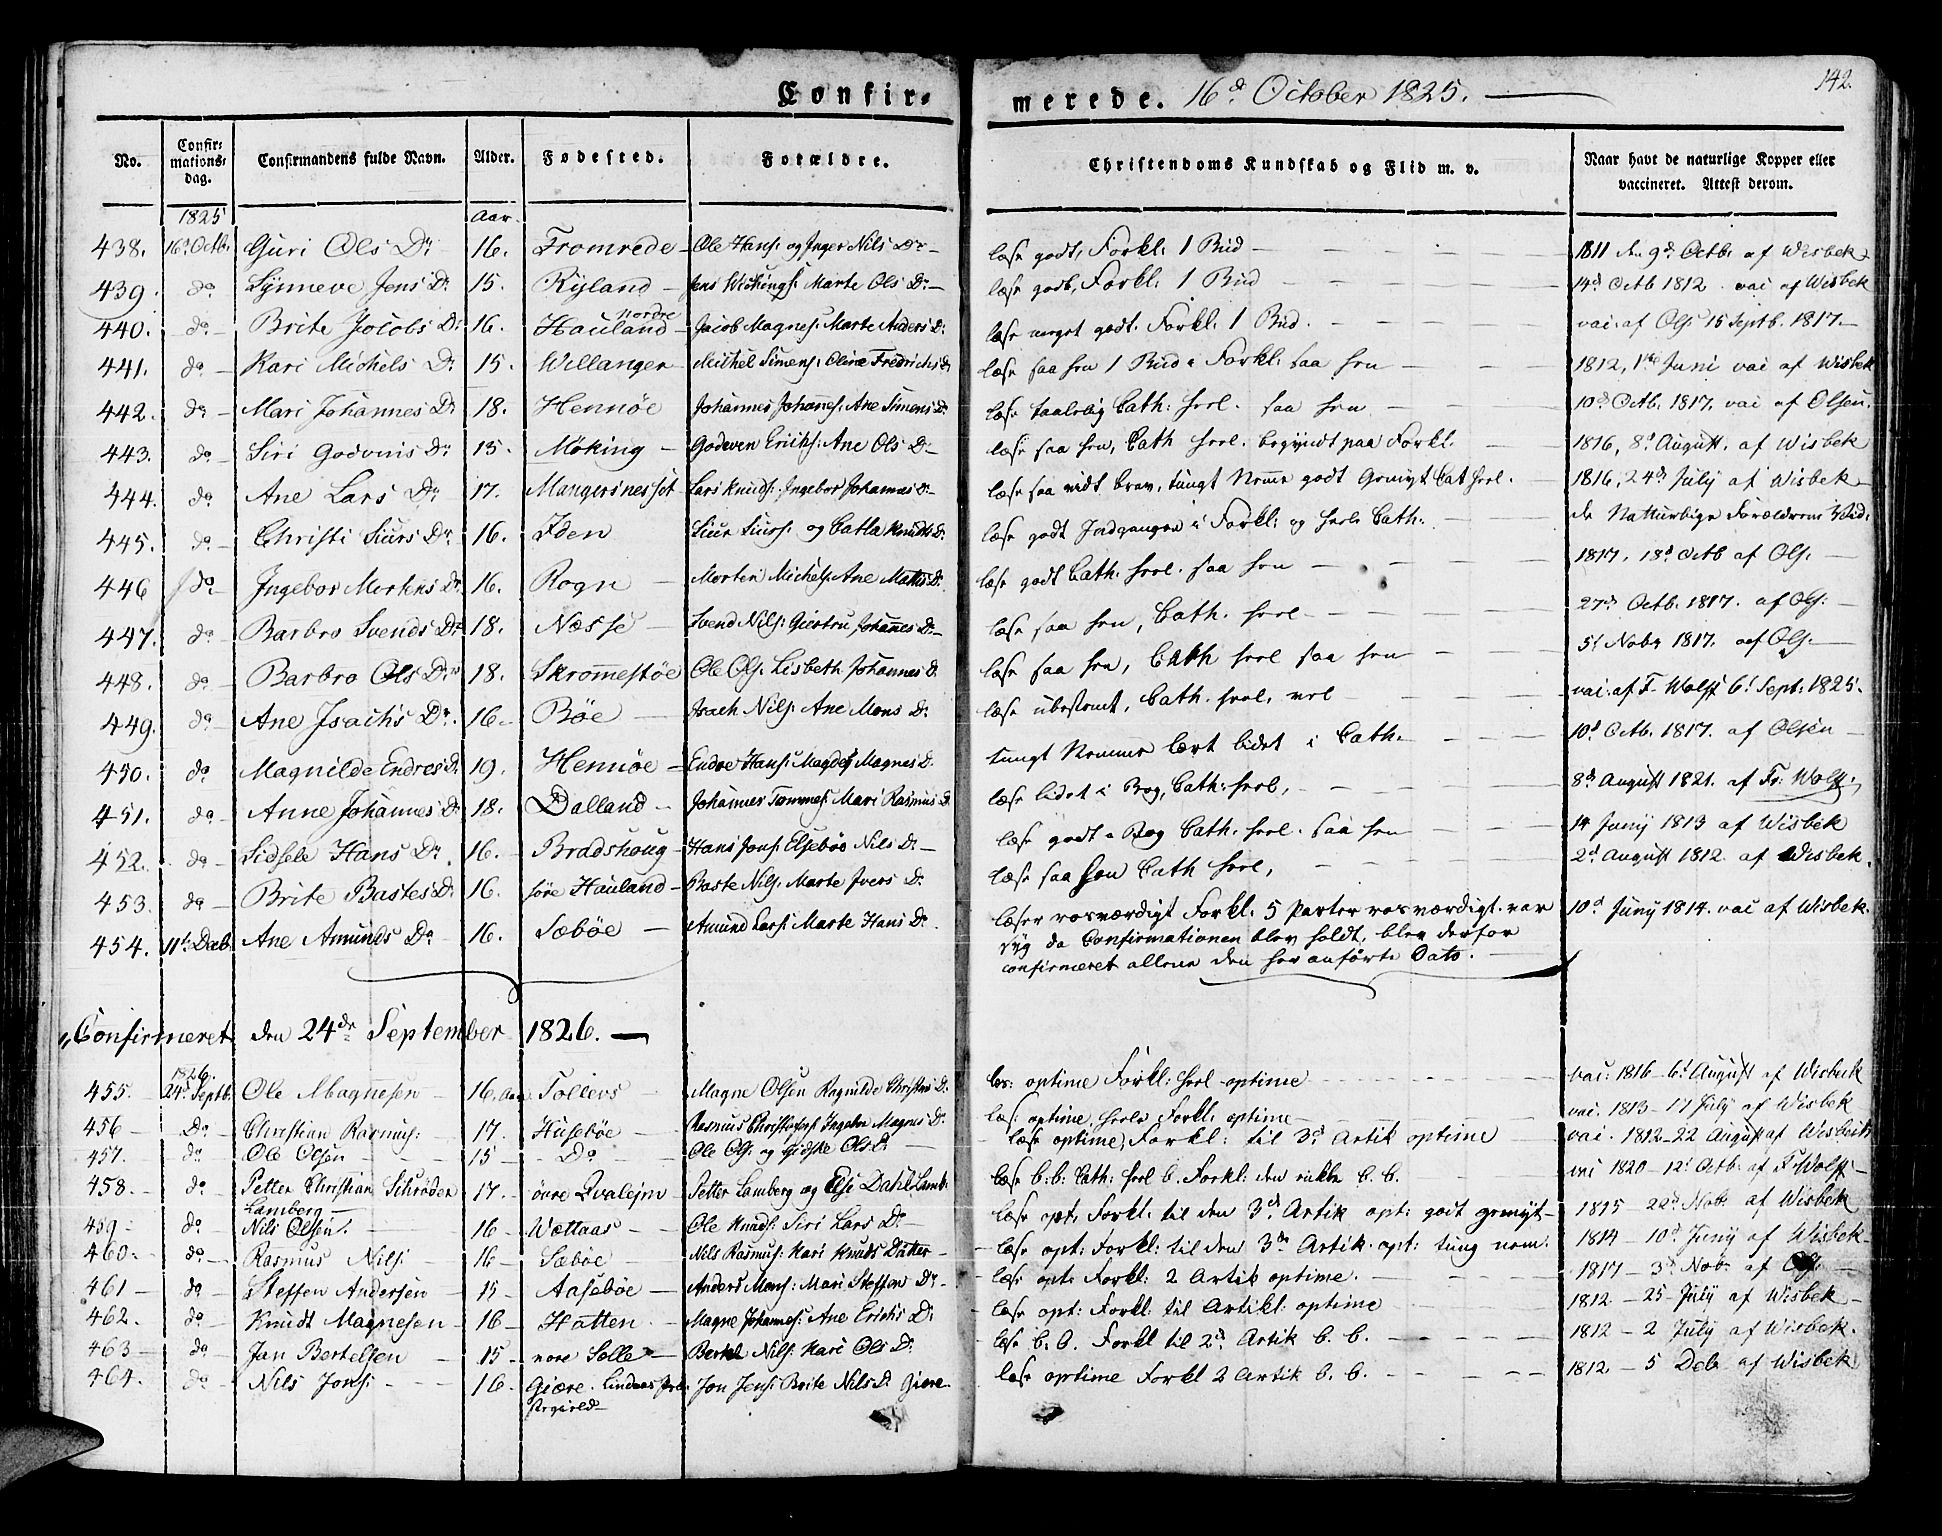 142.
Confir-
merede. 16d October 1825.
No.
Confir-
mations-
dag.
Confirmandens fulde Navn.
Alder.
Fødested.
Forældre.
Christendoms Kundskab og Flid m. v.
Naar havt de naturlige Kopper eller
vaccineret. Attest derom.
1825 Aar.
438. 16d Octb. Guri Ols Dr 16. Fromrede Ole Hans: og Inger Nils Dr læse godt, Forkl: 1 Bud 1811 den 9d Octb. af Wisbek
439. do Synneve Jens Dr 15. Ryland Jens Wichings: Marte Ols Dr læse godt, Forkl: 1 Bud 14d Octb 1812 vai af Wisbek
440. do Brite Jacobs Dr 16. Nordre Hauland Jacob Magnes: Marte Anders Dr læse meget godt. Forkl. 1 Bud. vai. af Ols: 15 Septb. 1817.
441. do Kari Michels Dr 15. Willanger Michel Simens: Oline Fredrichs Dr læse saa hen 1 Bud i Forkl. saa hen 1812, 1ste Juni vai af Wisbek
442. do Mari Johannes Dr 18. Hennøe Johannes Johannes: Ane Simens Dr læse taalelig Cath: heel. saa hen 10d Octb. 1817. vai af Olsen.
443. do Siri Godvins Dr 15. Møking Godeven Erichs: Ane Ols Dr læse saa hen, Cath heel. begyndt paa Forkl. 1816, 8d August. af Wisbek
444. do Ane Lars Dr 17. Mangersnesset Lars Knuds: Ingebor Johannes Dr læse saa vidt brav, tungt Nemme godt Gemyt Cat heel. 1816, 24d July af Wisbek
445. do Christi Siurs Dr 16. Iden Siur Siurs: og Catla Knuds Dr læse godt Indgangen i Forkl: og heele Cath: de Natturlige Forældrenes Vid:
446 do Ingebor Mortens Dr 16. Rogn Morten Michels: Ane Mattis Dr læse godt Cath. heel. saa hen 1817, 18d Octb af Ols:
447. do Barbro Svends Dr 18. Næsse Svend Nils: Giertru Johannes Dr læse saa hen, Cath. heel 27d Octb. 1817. af Ols:
448. do Barbro Ols Dr 18. Skrommestøe Ole Ols: Lisbeth Johannes D. læse saa hen, Cath heel saa hen 5d Nobr 1817. af Ols:
449. do Ane Isachs Dr. 16 Bøe Isach Nils: Ane Mons Dr læse ubestemt, Cath. heel, vel vai. af F. Wolff 6d Sept: 1825.
450. do Magnilde Endres Dr 19. Hennøe Endre Hans: Magdel Magnes D. tungt Nemme lært lidet i Cath. 10d Octb. 1817. af Olsen
451. do Anne Johannes Dr 18. Dalland Johannes Tommes: Mari Rasmus D. læse lidet i Bog, Cath: heel, 8d August 1821. af Fr: Wolff,
452. do Sidsele Hans Dr 16. Bradshoug Hans Jons: Elsebøe Nils Dr læse godt i Bog Cath. heel. saa hen 14 Juny 1813 af Wisbek
453. do Brite Bastes Dr 16. søre Hauland Baste Nils: Marte Ivers Dr læse saa hen Cath heel, 2d August 1812. af Wisbek.
454. 11d Decb. Ane Amunds Dr 16. Sæbøe Amund Lars: Marte Hans Dr læser rosværdigt Forkl: 5 Parter rosværdigt. var 10d Juny 1814. vai af Wisbek.
syg da Confirmationen blev holdt, blev derfor
confirmeret allene den her anførte Dato.
Confirmeret den 24de September 1826.
1826.
455. 24d Septb. Ole Magnesen 16. Aar Tollevs Magne Olsen Ragnilde Christens Dr læs: optime Forkl: heel optime vai: 1816 6d August af Wisbek
456 Do Christian Rasmus: 17. Husebøe Rasmus Christophers: Ingebor Magnes Dr. læs: optime, heele Forkl. optime vai. 1813 17 July af Wisbek
457. do Ole Olsen 15 Do Ole Ols: og Gidske Ols D. læse optime, Forkl: til 3d Artik optime vai. 1812 22 August af Wisbek
458. do Petter Christian Schrøder Lamberg 17. øvre Qvalejm Petter Lamberg og Else Dahl Lamb: læse b: b: Cath: heel b. Forkl: den rækte b. b. vai 1820 12d Octb. af F. Wolff
459 do Nils Olsen. 16 Wættaas Ole Knuds: Siri Lars Dr læse opt. Forkl. til den 3d Artik opt: godt gemyt 1815 22d Nob: af Wisbek
460. do Rasmus Nils: 16 Sæbøe Nils Rasmus: Kari Knuds Datter læse opt: Forkl: til den 3de Artik. opt: tung nem. 1814 10d Juny af Wisbek
461 do Steffen Andersen 15 Aasebøe Anders Mons: Mari Steffen Dr læse opt: Forkl: 2 Artik optime. 1817 3d Nob: af Ols:
462. do Knudt Magnesen 16 Hatten Magne Johannes: Ane Erichs Dr læse opt: Forkl: til Artikl: optime 1812 25 July af Wisbek
463 do Jan Bertelsen 15 nore Solle Bertel Nils: Kari Ols Dr læse b. b. Forkl til 2d Artik b. b. 1812 2 July af Wisbek.
464. do Nils Jons: 16. Giære. Lindaas Præstegield Jon Jens: Brite Nils D. Giære læse optime Forkl 2 Artik b. b. 1812 5 Deb. af Wisbek